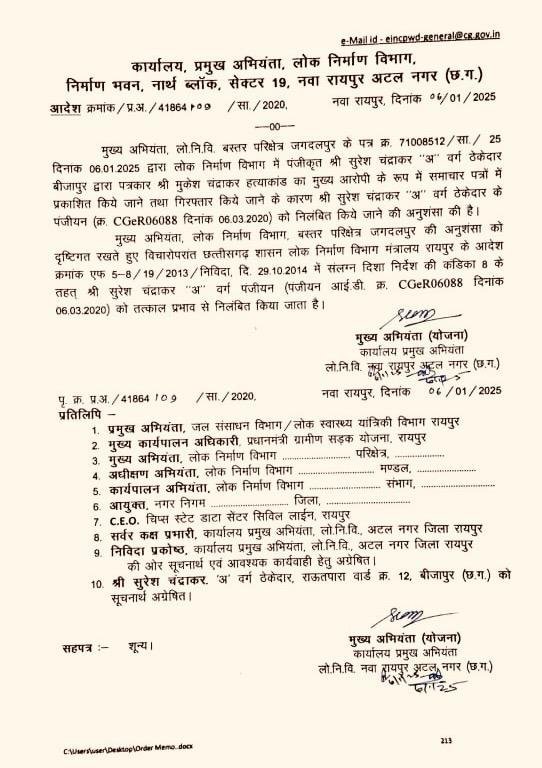 e-Mail id - eincpwd-general@cg.gov.in
कार्यालय, प्रमुख अभियंता, लोक निर्माण विभाग,
निर्माण भवन, नार्थ ब्लॉक, सेक्टर 19, नवा रायपुर अटल नगर (छ.ग.)
आदेश क्रमांक/प्र.अ./41864 109 /सा./2020, नवा रायपुर, दिनांक 06/01/2025
—00—
मुख्य अभियंता, लो.नि.वि. बस्तर परिक्षेत्र जगदलपुर के पत्र क्र. 71008512/सा./ 25
दिनांक 06.01.2025 द्वारा लोक निर्माण विभाग में पंजीकृत श्री सुरेश चंद्राकर "अ" वर्ग ठेकेदार
बीजापुर द्वारा पत्रकार श्री मुकेश चंद्राकर हत्याकांड का मुख्य आरोपी के रूप में समाचार पत्रों में
प्रकाशित किये जाने तथा गिरफ्तार किये जाने के कारण श्री सुरेश चंद्राकर "अ" वर्ग ठेकेदार के
पंजीयन (क्र. CGeR06088 दिनांक 06.03.2020) को निलंबित किये जाने की अनुशंसा की है।
मुख्य अभियंता, लोक निर्माण विभाग, बस्तर परिक्षेत्र जगदलपुर की अनुशंसा को
दृष्टिगत रखते हुए विचारोपरांत छत्तीसगढ़ शासन लोक निर्माण विभाग मंत्रालय रायपुर के आदेश
क्रमांक एफ 5-8/19/2013/निविदा, दि. 29.10.2014 में संलग्न दिशा निर्देश की कंडिका 8 के
तहत् श्री सुरेश चंद्राकर "अ" वर्ग पंजीयन (पंजीयन आई.डी. क्र. CGeR06088 दिनांक
06.03.2020) को तत्काल प्रभाव से निलंबित किया जाता है।
मुख्य अभियंता (योजना)
कार्यालय प्रमुख अभियंता
लो.नि.वि. नवा रायपुर अटल नगर (छ.ग.)
पृ. क्र. प्र.अ./41864 109 /सा./2020, नवा रायपुर, दिनांक 06/01/2025
प्रतिलिपि –
1. प्रमुख अभियंता, जल संसाधन विभाग/लोक स्वास्थ्य यांत्रिकी विभाग रायपुर
2. मुख्य कार्यपालन अधिकारी, प्रधानमंत्री ग्रामीण सड़क योजना, रायपुर
3. मुख्य अभियंता, लोक निर्माण विभाग .......................... परिक्षेत्र, ................
4. अधीक्षण अभियंता, लोक निर्माण विभाग .......................... मण्डल, ...................
5. कार्यपालन अभियंता, लोक निर्माण विभाग ........................ संभाग, ........................
6. आयुक्त, नगर निगम .......................... जिला, ..........................
7. C.E.O. चिप्स स्टेट डाटा सेंटर सिविल लाईन, रायपुर
8. सर्वर कक्ष प्रभारी, कार्यालय प्रमुख अभियंता, लो.नि.वि., अटल नगर जिला रायपुर
9. निविदा प्रकोष्ठ, कार्यालय प्रमुख अभियंता, लो.नि.वि., अटल नगर जिला रायपुर
की ओर सूचनार्थ एवं आवश्यक कार्यवाही हेतु अग्रेषित।
10. श्री सुरेश चंद्राकर. 'अ' वर्ग ठेकेदार, राऊतपारा वार्ड क्र. 12, बीजापुर (छ.ग.) को
सूचनार्थ अग्रेषित।
मुख्य अभियंता (योजना)
सहपत्र :- शून्य।
कार्यालय प्रमुख अभियंता
लो.नि.वि. नवा रायपुर अटल नगर (छ.ग.)
6/1/25
213
C:\Users\user\Desktop\Order Memo..docx